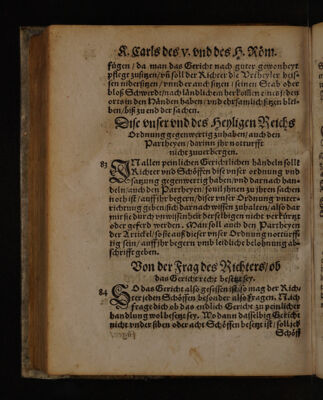 K. Carls des v. vnd des H. Röm.
fügen / da man das Gericht nach guter gewonheyt
pflegt zusitzen / vñ soll der Richter die Vrtheyler heis-
sen nidersitzen / vnnd er auch sitzen / seinen Stab oder
bloß Schwerdt / nach ländlichen herkoṁen eines jeden
orts in den Händen haben / vnd ehrsamlich sitzen blei-
ben / biß zu end der sachen.
Dise vnser vnd des Heyligen Reichs
Ordnung gegenwertig zuhaben / auch den
Partheyen / darinn jhr notturfft
nicht zuuerbergen.
83 IN allen peinlichen Gerichtlichen händeln sollẽ
Richter vnd Schöffen dise vnser ordnung vnd
satzung gegenwertig haben / vnd darnach han-
deln / auch den Partheyen / souil jhnen zu jhren sachen
noth ist / auff jhr begern / diser vnser Ordnung vnter-
richtung geben / sich darnach wissen zuhalten / also dar
mit sie durch vnwissenheit derselbigen nicht verkürtzt
oder geferd werden. Man soll auch den Partheyen
der Artickel / so sie auß diser vnser Ordnung notturff-
tig sein / auff jhr begern vmb leidliche belohnung ab-
schrifft geben.
Von der Frag des Richters / ob
das Gericht recht besetzt sey.
84 SO das Gericht also gesessen ist / so mag der Rich-
ter jeden Schöffen besonder also fragen. N. ich
frage dich ob das endlich Gericht zu peinlicher
handlung wol besetzt sey. Wo dann dasselbig Gericht
nicht vnder siben oder acht Schöffen besetzt ist / soll jed
Schöff